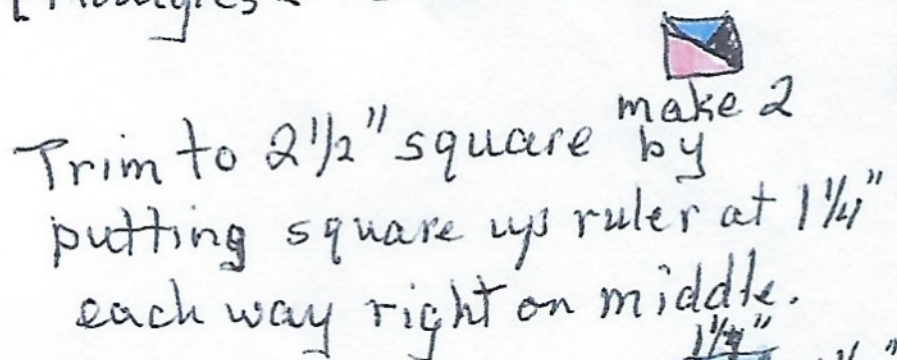 make 2
Trim to 2 1/2" square by
putting square up ruler at 1 1/4"
each way right on middle.
1 1/4"